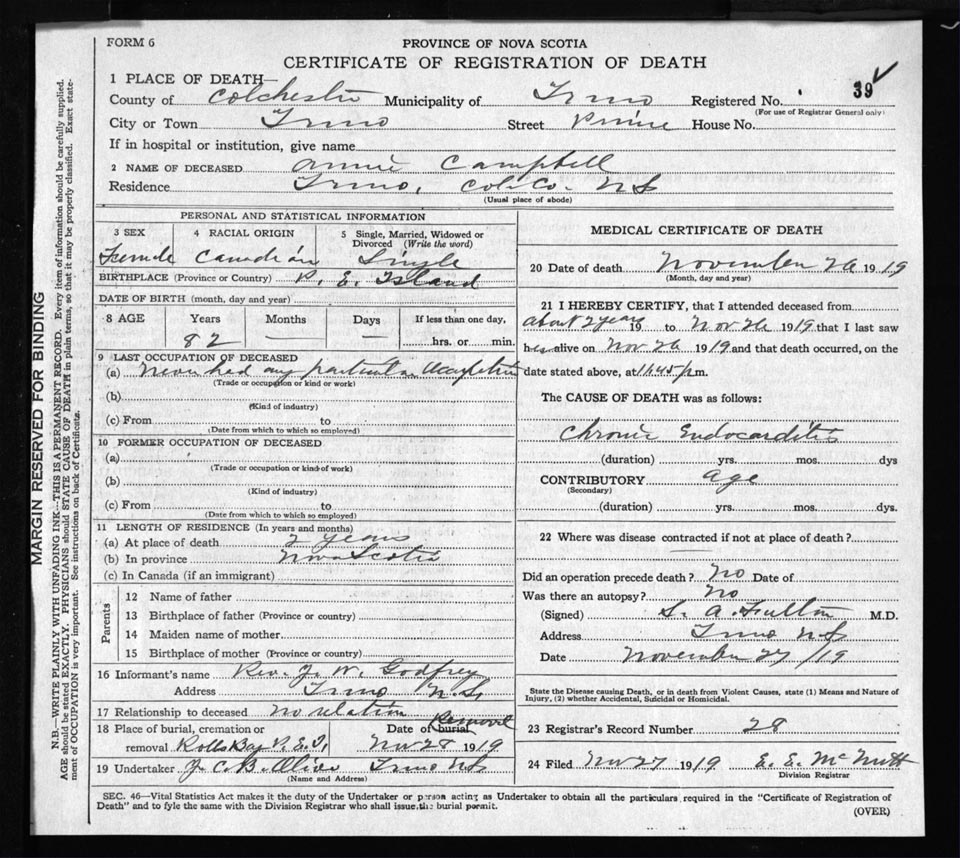 FORM 6
PROVINCE OF NOVA SCOTIA
CERTIFICATE OF REGISTRATION OF DEATH
39
1 PLACE OF DEATH—
County of Colchester Municipality of Truro Registered No.
(For use of Registrar General only)
City or Town Truro Street Prince House No.
If in hospital or institution, give name
2 NAME OF DECEASED Annie Campbell
Residence Truro, Col. Co. N S
(Usual place of abode)
PERSONAL AND STATISTICAL INFORMATION
3 SEX 4 RACIAL ORIGIN 5 Single, Married, Widowed or Divorced (Write the word)
Female Canadian Single
BIRTHPLACE (Province or Country) P. E. Island
DATE OF BIRTH (month, day and year)
8 AGE Years Months Days If less than one day,
82 — — hrs. or min.
9 LAST OCCUPATION OF DECEASED
(a) Never had any particular occupation
(Trade or occupation or kind or work)
(b)
(Kind of industry)
(c) From to
(Date from which to which so employed)
10 FORMER OCCUPATION OF DECEASED
(a)
(Trade or occupation or kind of work)
(b)
(Kind of industry)
(c) From to
(Date from which to which so employed)
11 LENGTH OF RESIDENCE (In years and months)
(a) At place of death 2 years
(b) In province Nova Scotia
(c) In Canada (if an immigrant)
Parents
12 Name of father
13 Birthplace of father (Province or country)
14 Maiden name of mother
15 Birthplace of mother (Province or country)
16 Informant's name Rev. J. W. Godfrey
Address Truro N.S.
17 Relationship to deceased No relation
Removal
18 Place of burial, cremation or Date of burial
removal Rolls Bay P.E.I, Nov 28 1919
19 Undertaker J. C. B. Olive Truro N S
(Name and Address)
MEDICAL CERTIFICATE OF DEATH
20 Date of death November 26 1919
(Month, day and year)
21 I HEREBY CERTIFY, that I attended deceased from
about 2 years 19 to Nov 26 1919 that I last saw
her alive on Nov 26 1919 and that death occurred, on the
date stated above, at 11.45 p.m.
The CAUSE OF DEATH was as follows:
Chronic Endocarditis
(duration) yrs. mos. dys
CONTRIBUTORY age
(Secondary)
(duration) yrs. mos. dys.
22 Where was disease contracted if not at place of death?
Did an operation precede death? No Date of
Was there an autopsy? No
(Signed) S. A. Fulton M.D.
Address Truro N S
Date November 27 /19
State the Disease causing Death, or in death from Violent Causes, state (1) Means and Nature of
Injury, (2) whether Accidental, Suicidal or Homicidal.
23 Registrar's Record Number 28
24 Filed Nov 27 1919 E. E. McNutt
Division Registrar
SEC. 46—Vital Statistics Act makes it the duty of the Undertaker or person acting as Undertaker to obtain all the particulars required in the "Certificate of Registration of
Death" and to fyle the same with the Division Registrar who shall issue the burial permit.
(OVER)
MARGIN RESERVED FOR BINDING
N.B.—WRITE PLAINLY WITH UNFADING INK—THIS IS A PERMANENT RECORD. Every item of information should be carefully supplied.
AGE should be stated EXACTLY. PHYSICIANS should STATE CAUSE OF DEATH in plain terms, so that it may be properly classified. Exact state-
ment of OCCUPATION is very important. See instructions on back of Certificate.